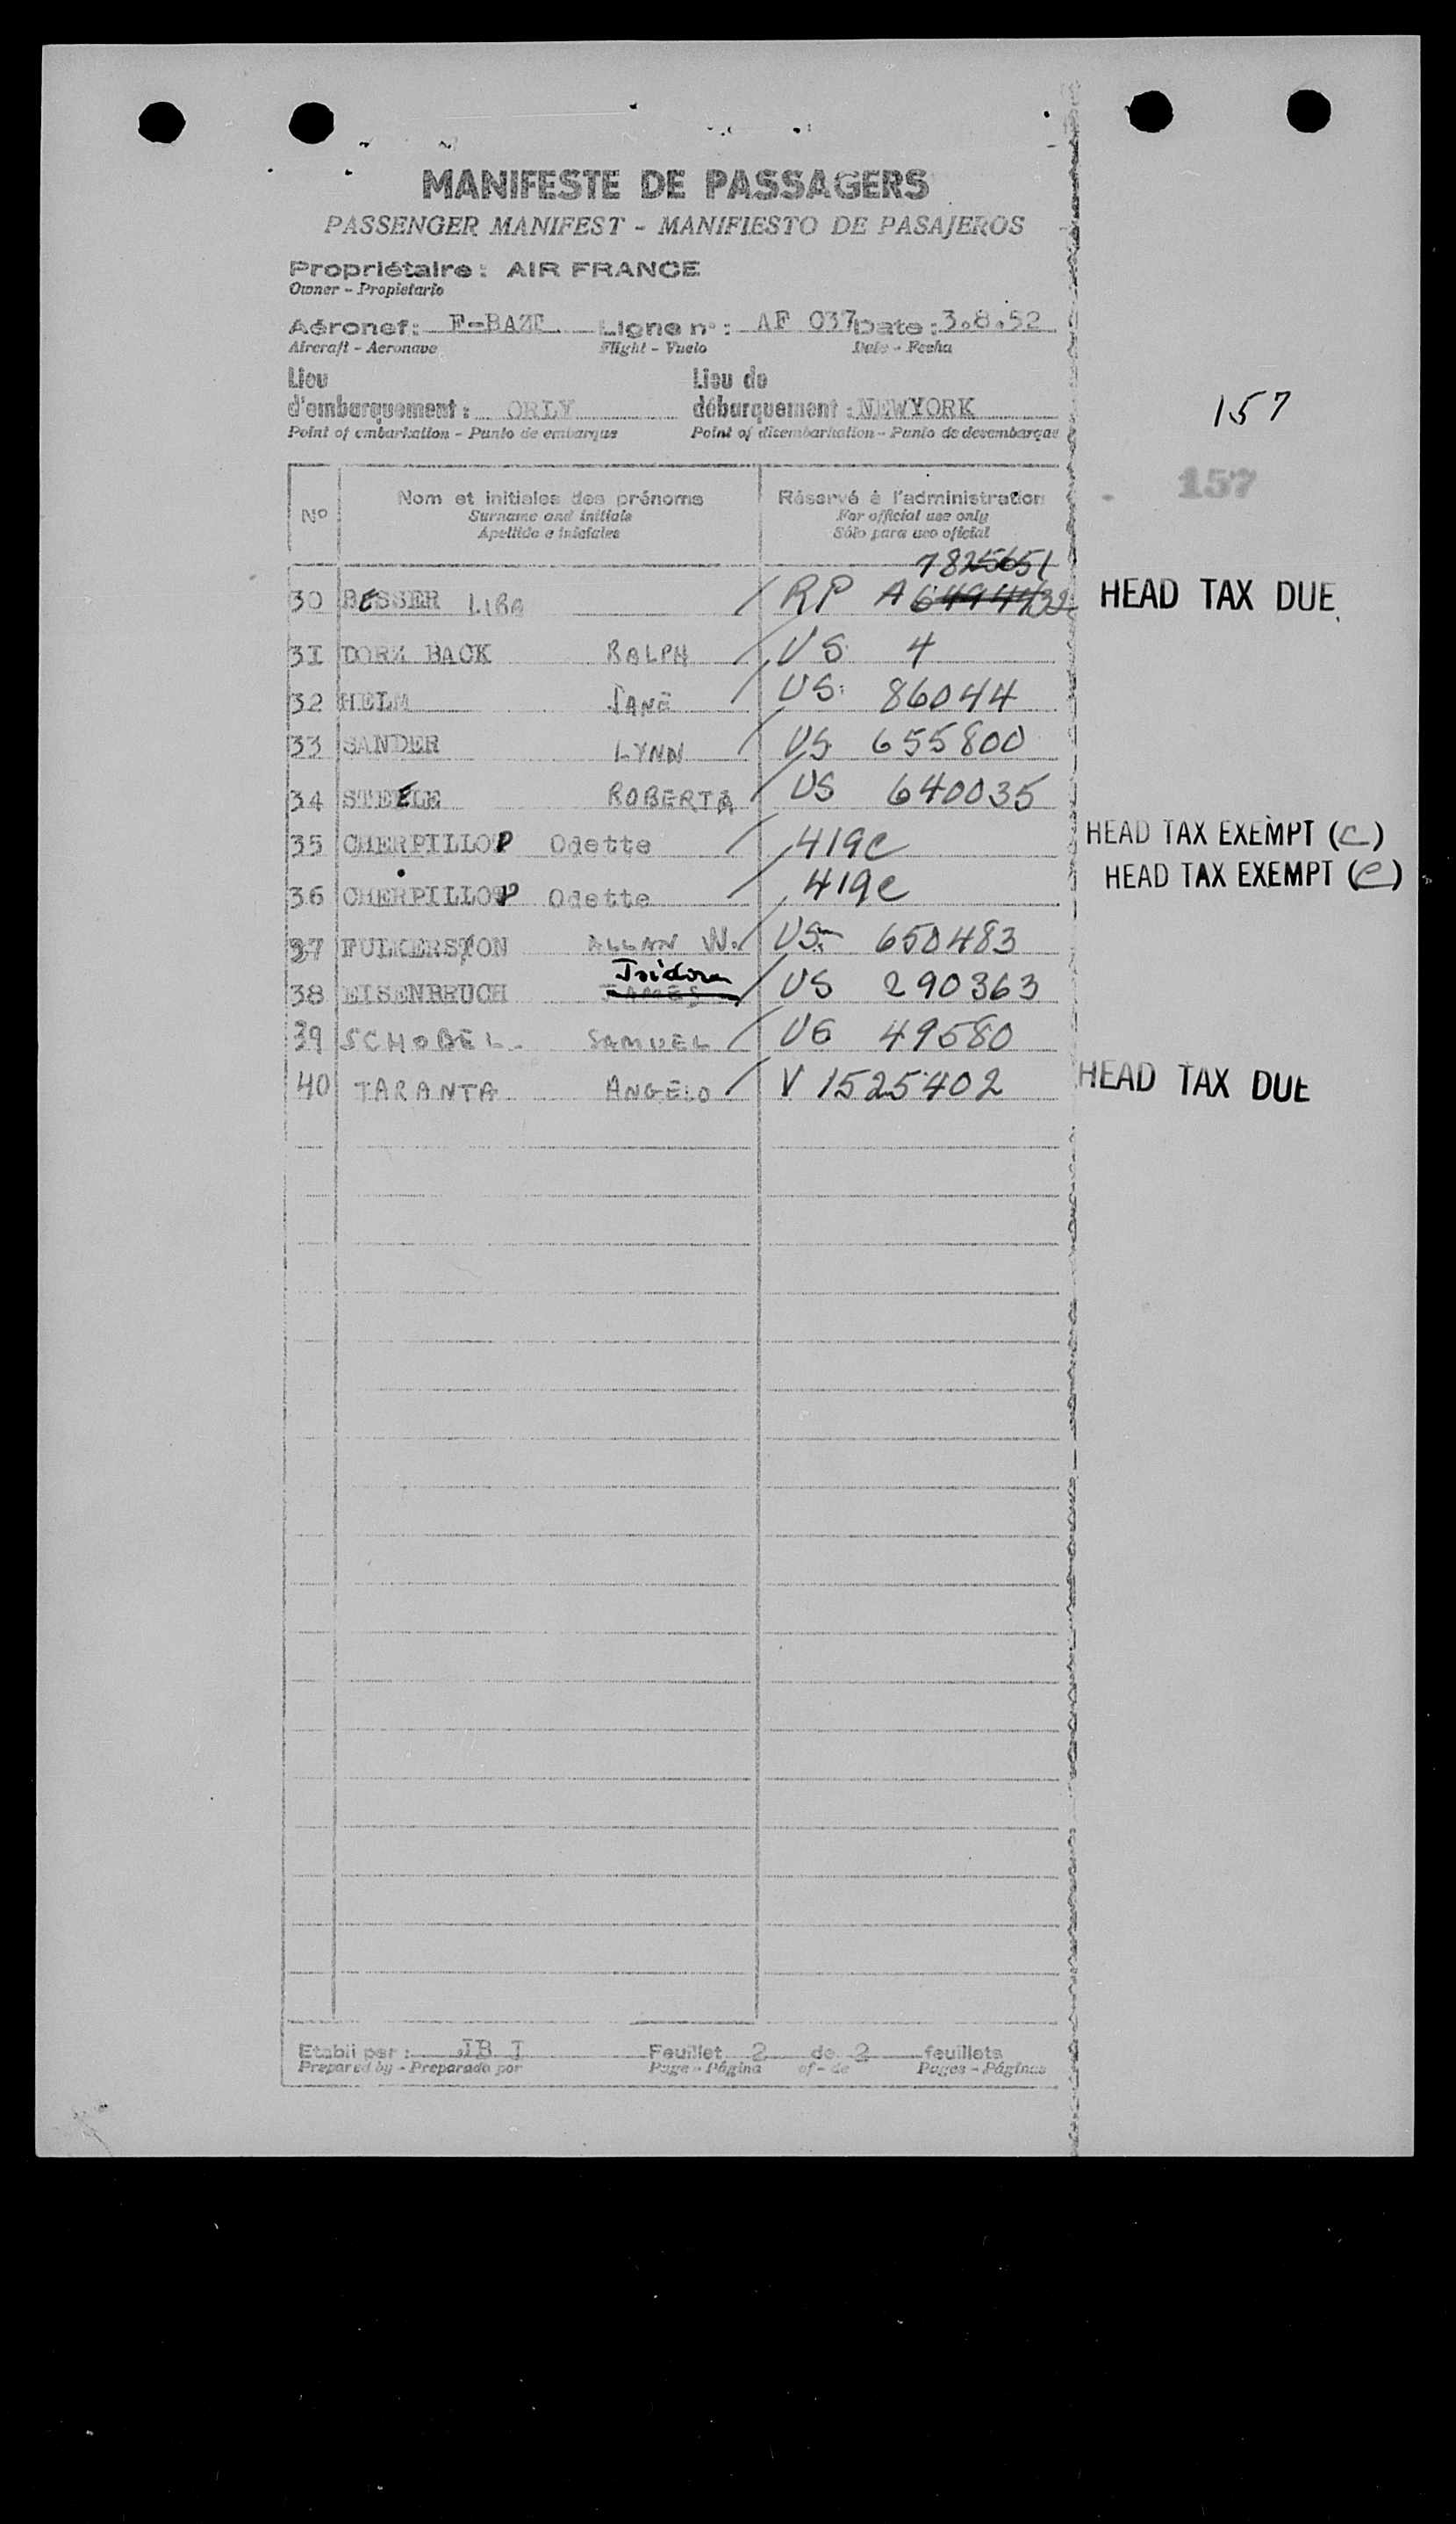 MANIFESTE DE PASSAGERS
PASSENGER MANIFEST - MANIFIESTO DE PASAJEROS
Propriétaire : AIR FRANCE
Owner - Propietario
Aéronef : F-BAZT Ligne n° : AF 037 Date : 3.8.52
Aircraft - Aeronave Flight - Vuelo Date - Fecha
Lieu Lieu de
d'embarquement : ORLY débarquement : NEWYORK
Point of embarkation - Punto de embarque Point of disembarkation - Punto de desembarque
157
157
Nº Nom et initiales des prénoms Réservé à l'administration
Surname and initials For official use only
Apellido e iniciales Sólo para uso oficial
7825651
30 BESSER LIBA RP A HEAD TAX DUE
31 BACK RALPH US 4
32 HELM JANE US 86044
33 SANDER LYNN US 655800
34 STEELE ROBERTA US 640035
35 CHERPILLOD Odette 419c HEAD TAX EXEMPT (C)
36 CHERPILLOD Odette 419c HEAD TAX EXEMPT (C)
37 FULKERSON ALLAN W. US 650483
Isidore
38 EISENBRUCH JAMES US 290363
39 SCHOBEL SAMUEL US 49580
40 TARANTA ANGELO V 1525402 HEAD TAX DUE
Etabli par : JB T Feuillet 2 de 2 feuillets
Prepared by - Preparado por Page - Página of - de Pages - Páginas